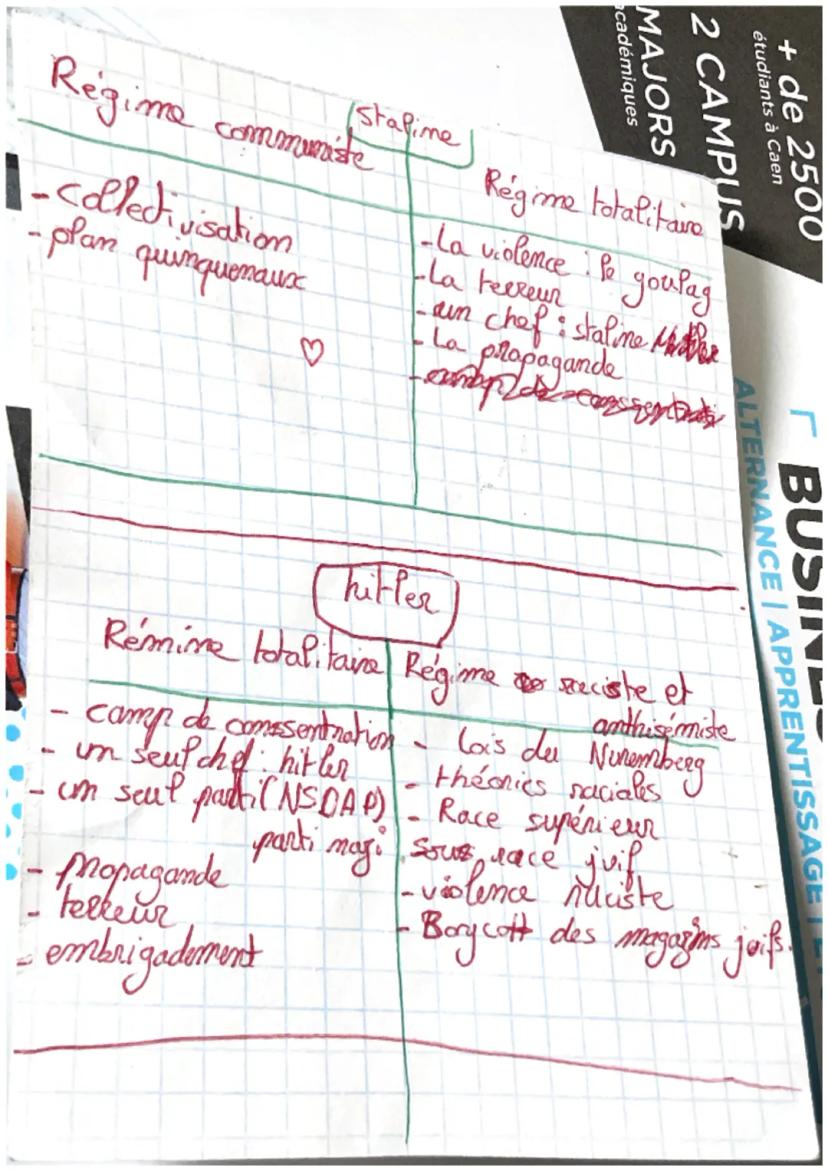 Régime communiste
Staline
Régime totalitaire
- collectivisation
- plan quinquenaux
- La violence : le goulag
- La terreur
- un chef : staline
- La propagande
hitler
Rémime totalitaire
- camp de conssentration
- un seul chef : hitler
- un seul parti (NSDAP)
parti nazi
- propagande
- terreur
- embrigadement
Régime raciste et
anthisémiste
- Lois du Nuremberg
- théories raciales
- Race supérieur
sous race juif
- violence raciste
- Borycott des magazins juifs.
+ de 2500
étudiants à Caen
2 CAMPUS
MAJORS
académiques
BUSINES
ALTERNANCE | APPRENTISSAGE